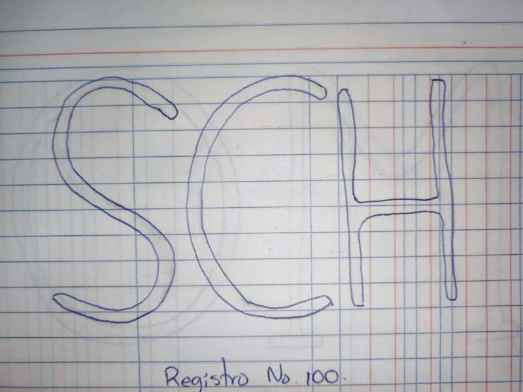 SCH
Registro No. 100.